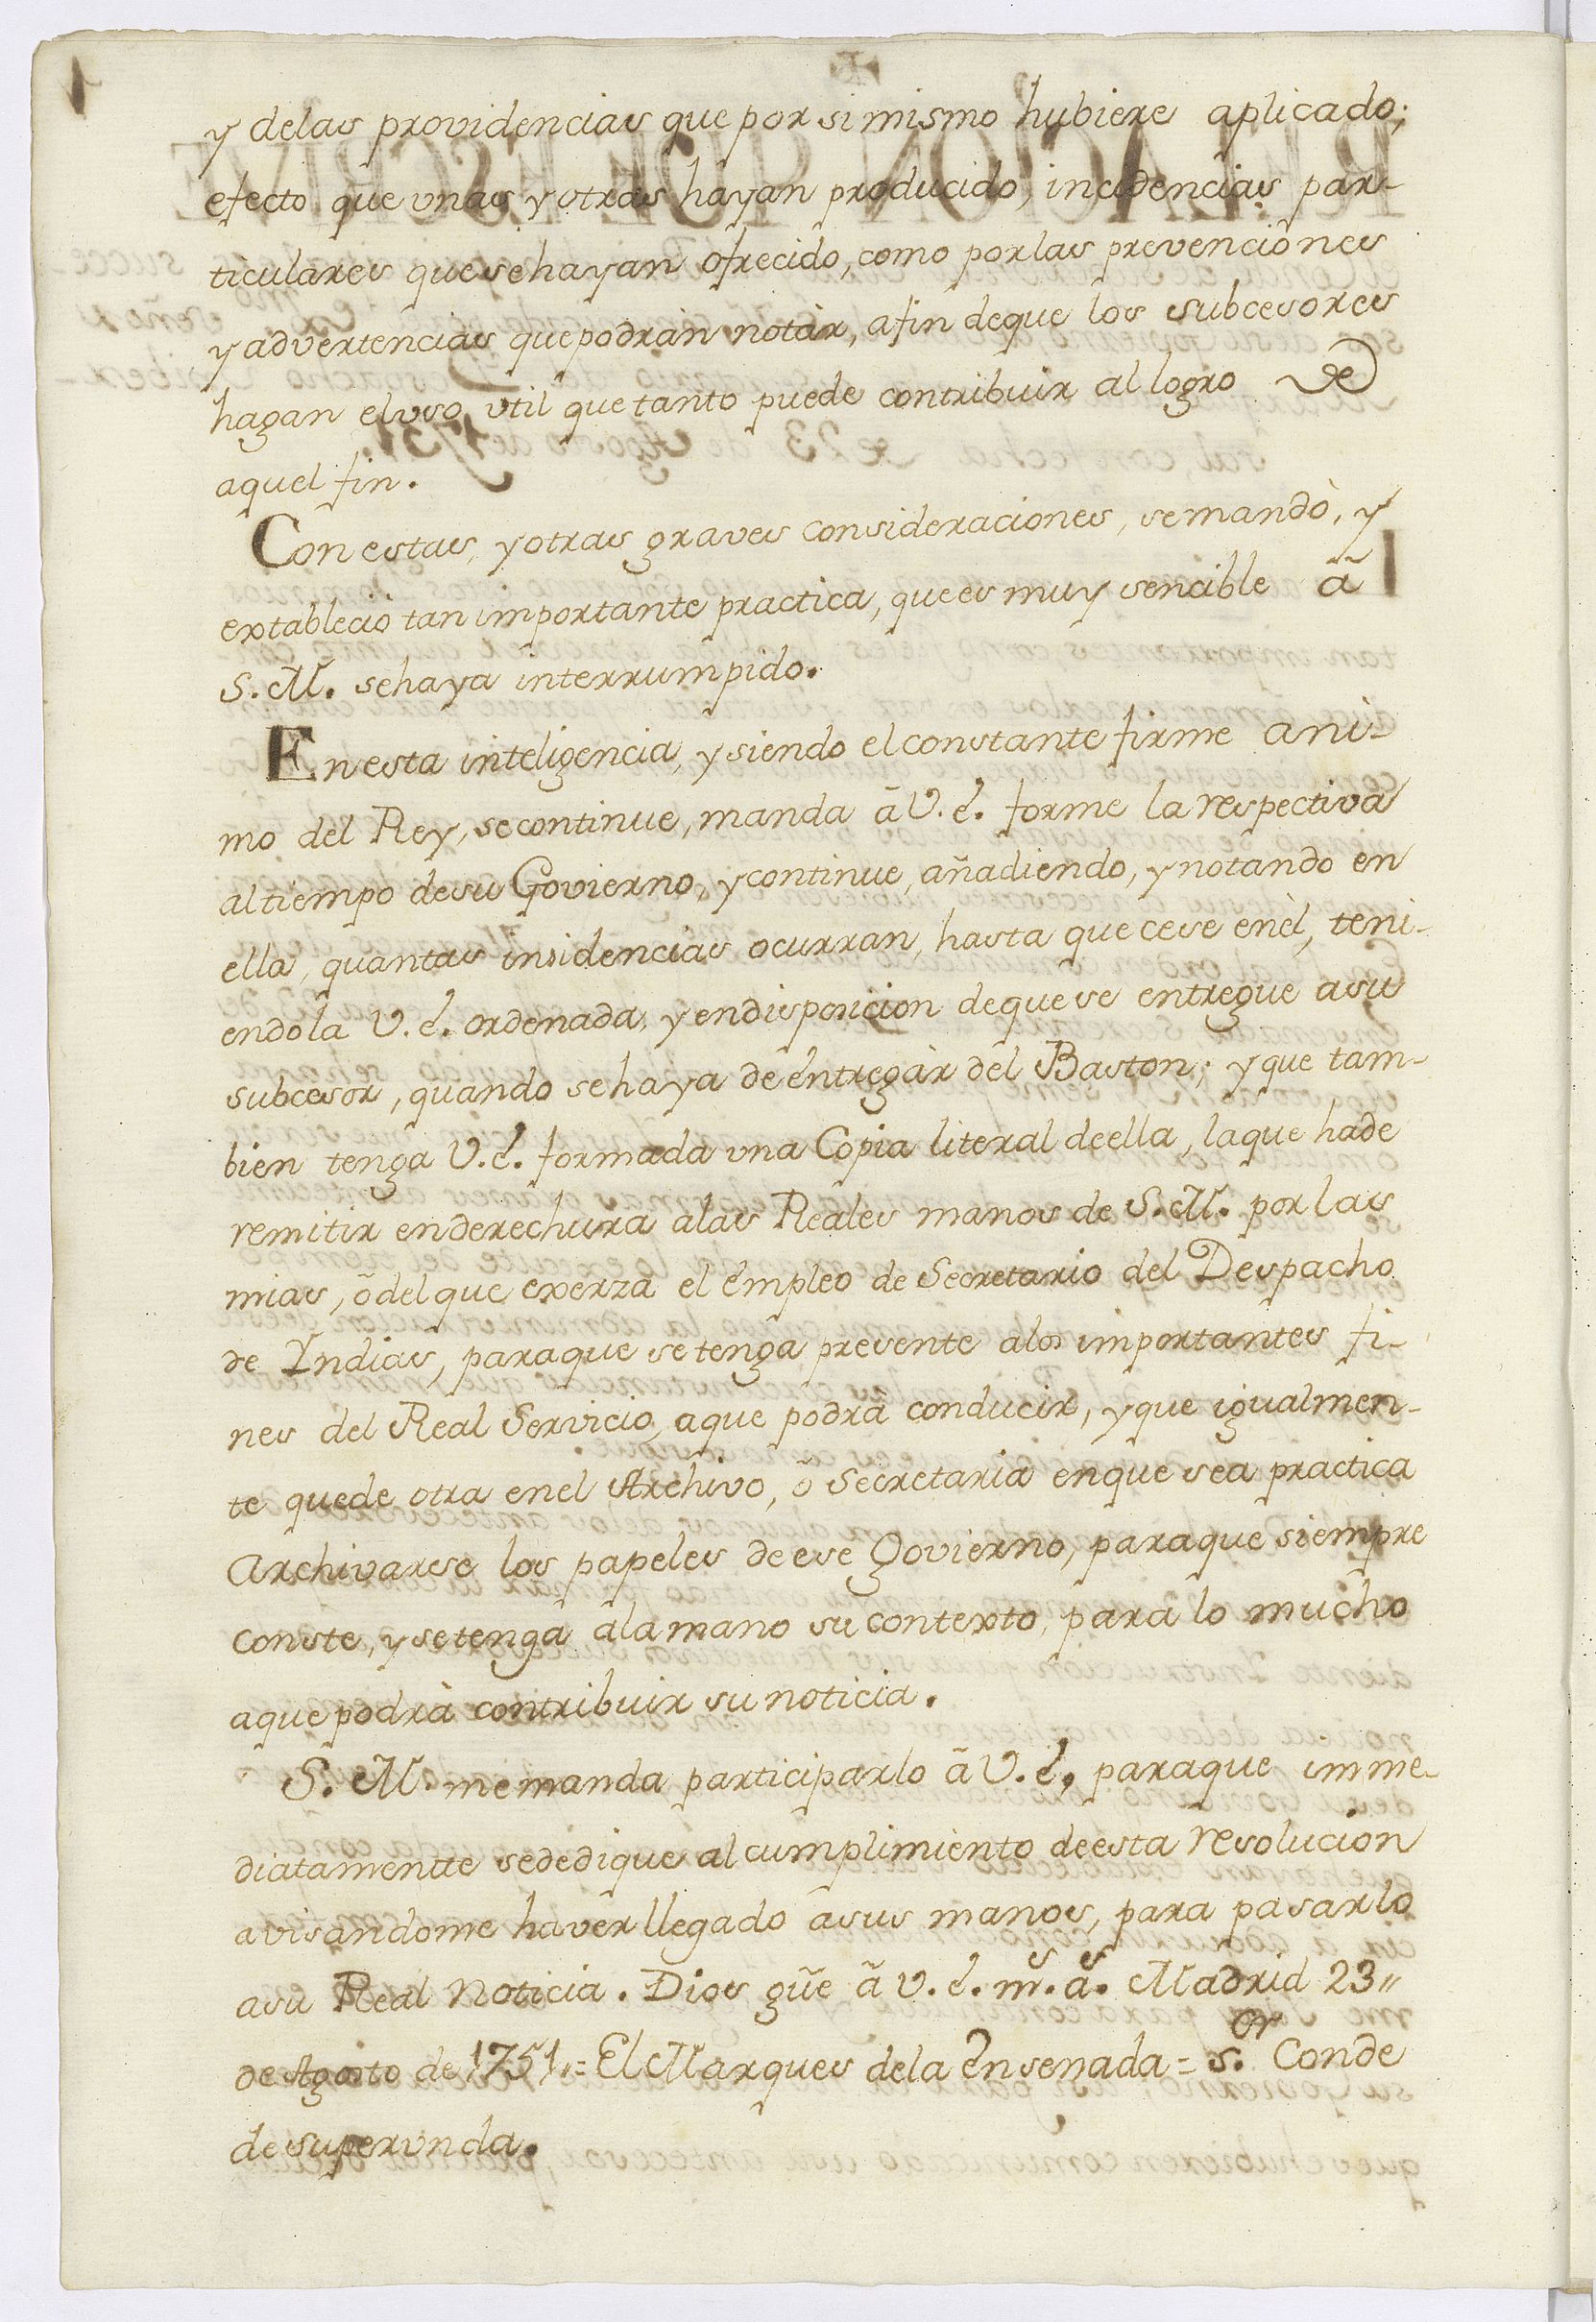 y delas providencias que por si mismo hubiere aplicado;
efecto que vnas y otras hayan producido, incidencias par-
ticulares que se hayan ofrecido, como por las prevenciones
y advertencias que podràn notàr, a fin deque los subcesores
hagan el vso vtil que tanto puede contribuir al logro de
aquel fin.
Con estas, y otras graves consideraciones, se mandò, y
extableciò tan importante practica, que es muy sencible ã
S. M. se haya interrumpido.
En esta inteligencia, y siendo el constante firme ani-
mo del Rey, se continue, manda ã V. é. forme la respectiva
al tiempo de su Govierno, y continue, añadiendo, y notando en
ella, quantas insidencias ocurran, hasta que cese enèl, teni-
endola V. é. ordenada, y en disposicion de que se entregue a su
subcesor, quando se haya de entregàr del Baston; y que tam-
bien tenga V. é. formada vna Copia literal de ella, la que hade
remitir en derechura alas Reales manos de S. M. por las
mias, õ del que exerza el émpleo de Secretario del Despacho
de Yndias, para que se tenga presente alos importantes fi-
nes del Real Servicio, a que podrã conducir, y que igualmen-
te quede otra enel Archivo, õ Secretaria en que sea practica
Archivarse los papeles de ese Govierno, para que siempre
conste, y se tenga ala mano su contexto, para lo mucho
a que podrà contribuir su noticia.
S. M. me manda participarlo ã V. é, para que imme-
diatamentte se dedique al cumplimiento de esta resolucion
avisandome haver llegado ã sus manos, para pasarlo
a su Real Noticia. Dios gũe ã V. é. m.s a.s Madrid 23"
de Agosto de 1751,,= El Marques dela Énsenada = S.or Conde
de supervnda.